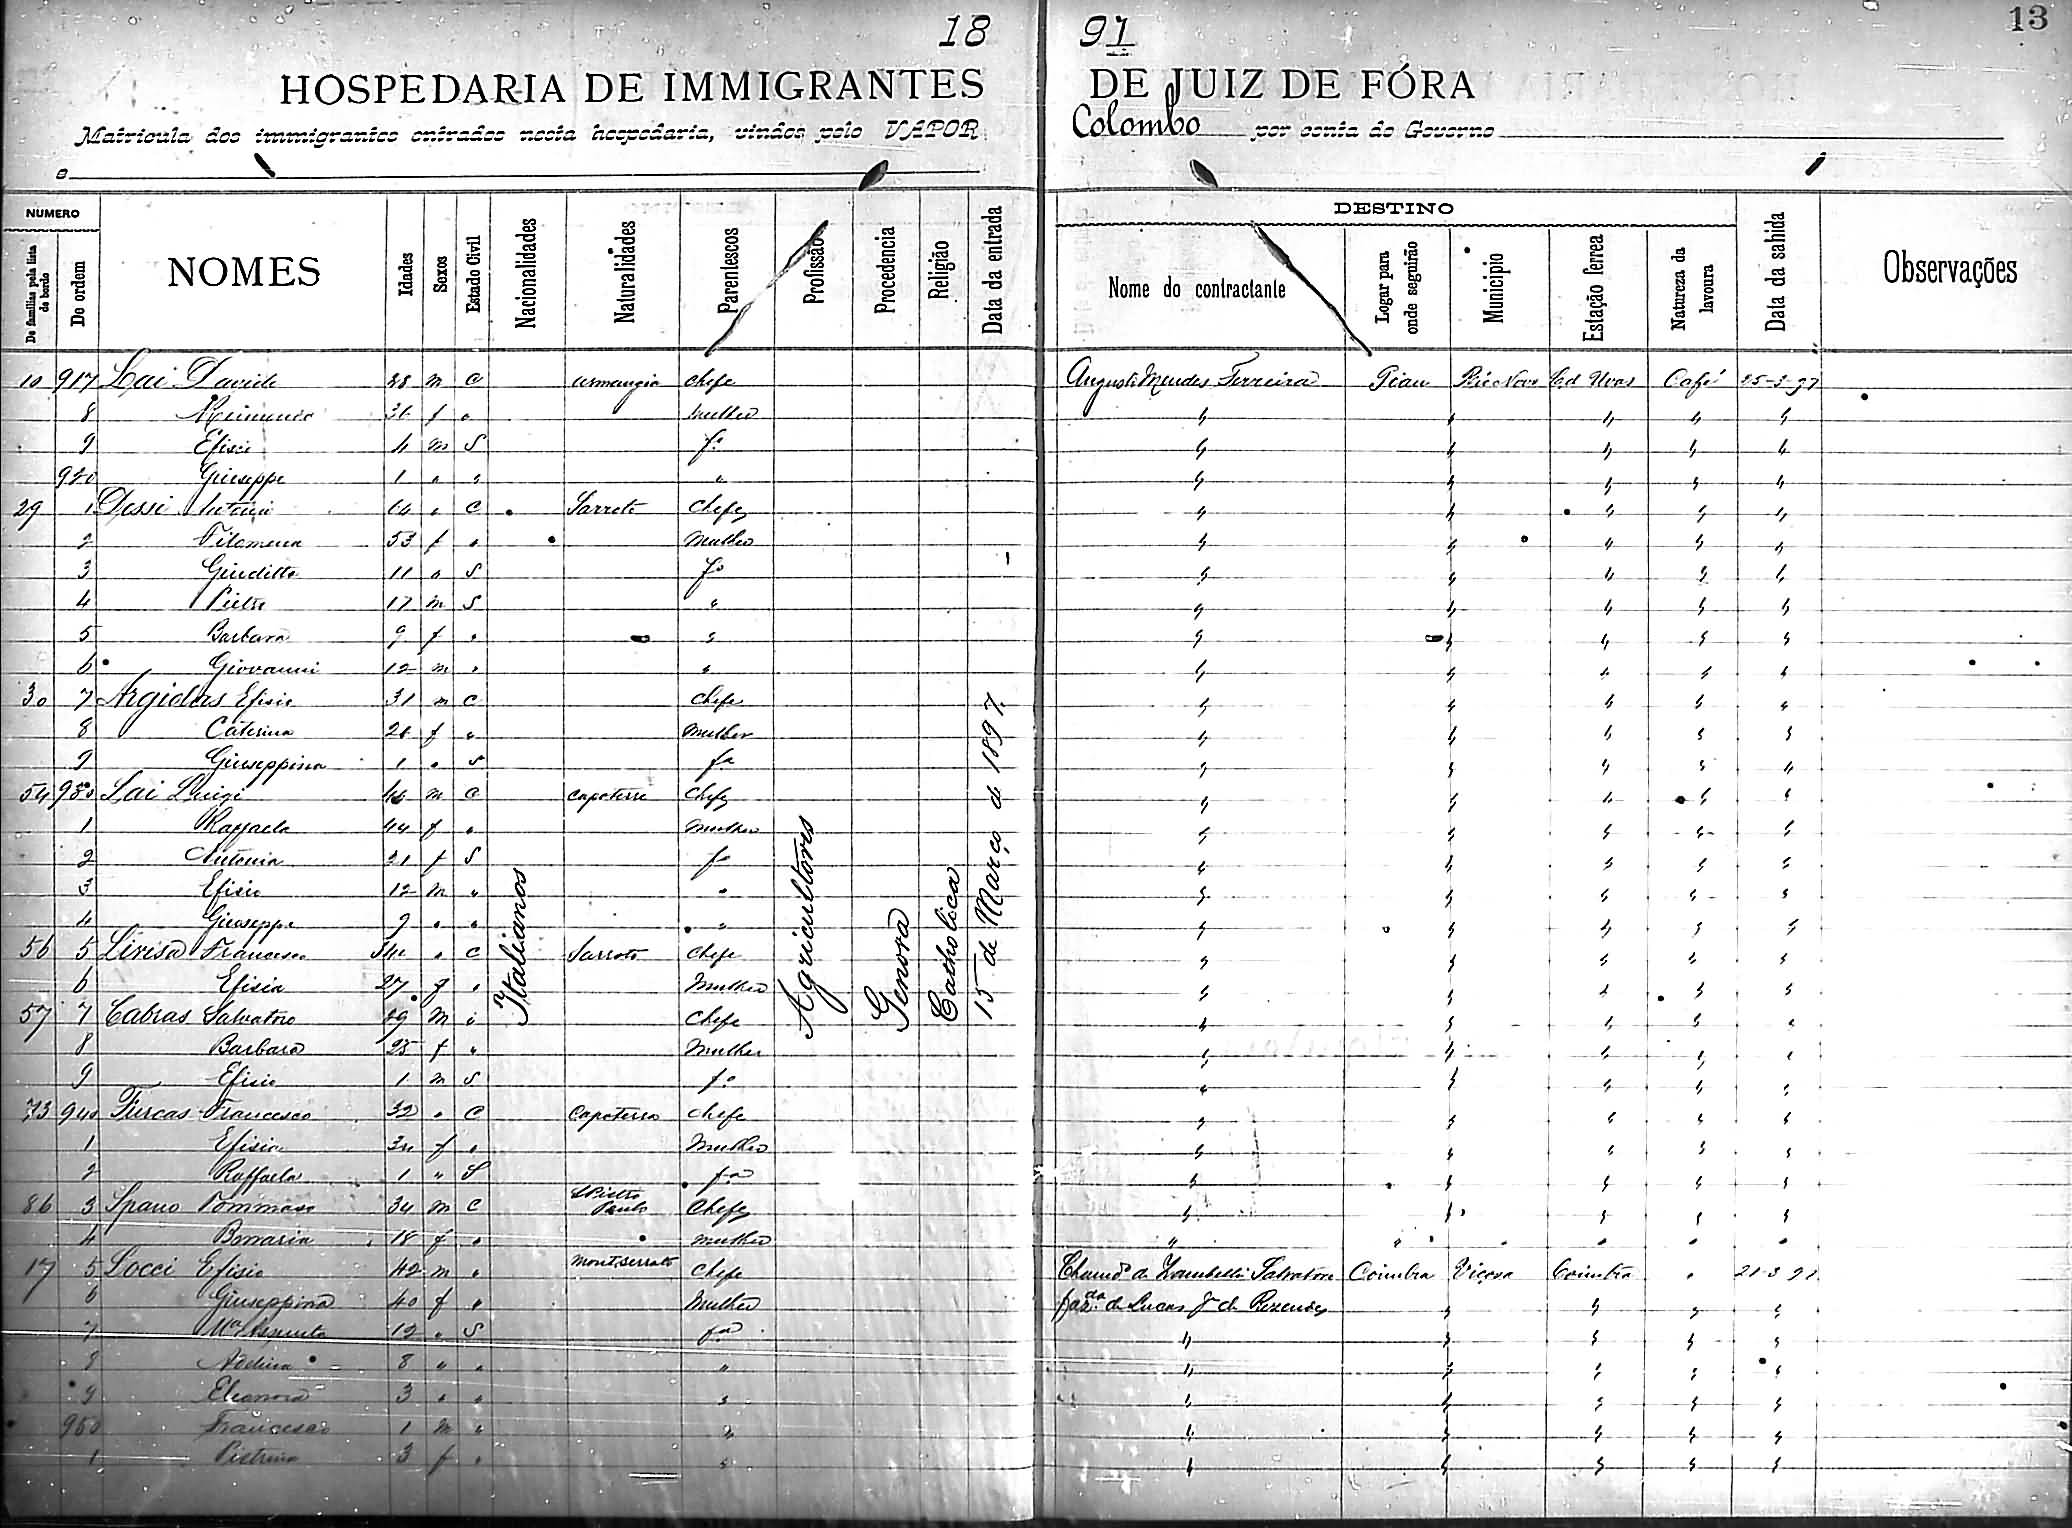 18 97
13
HOSPEDARIA DE IMMIGRANTES DE JUIZ DE FÓRA
Matricula dos immigrantes entrados nesta hospedaria, vindos pelo VAPOR Colombo por conta do Governo
e
NUMERO
De familias pela lista de bordo
De ordem
NOMES
Idades
Sexos
Estado Civil
Nacionalidades
Naturalidades
Parentescos
Profissão
Procedencia
Religião
Data da entrada
DESTINO
Nome do contractante
Logar para onde seguirão
Municipio
Estação ferrea
Natureza da lavoura
Data da sahida
Observações
Italianos
Agricultores
Genova
Catholica
15 de Março de 1897
10 917 Lai Davide 28 m C chefe Augusto Mendes Ferreira Piau Rio Novo Café 25-3-97
8 f " mulher "
9 Efisio m S fo "
920 Giuseppe 1 " " " "
29 1 Dessi " C Sarroto Chefe "
2 Filomena 53 f " Mulher "
3 Giuditta 11 " S "
4 Pietro 17 m S " "
5 Barbara 9 f " " "
6 Giovanni 12 m " " "
30 7 Argiolas Efisio 31 m C Chefe "
8 Caterina f " Mulher "
9 Giuseppina 1 " S fa "
54 930 Lai Luigi m C Capoterra Chefe "
1 Raffaela 44 f " Mulher "
2 Antonia 21 f S fa "
3 Efisio 12 m " " "
4 Giuseppe " " " "
56 5 Francesco " C Sarroto Chefe "
6 Efisia 27 f " Mulher "
57 7 Cabras Salvatore 29 m " Chefe "
8 Barbara 25 f " Mulher "
9 Efisio 1 m S fo "
73 940 Furcas Francesco 32 " C Capoterra Chefe "
1 Efisia f " Mulher "
2 Raffaela 1 " S fa "
86 3 Spano Tommaso 34 m C Chefe "
4 18 f " mulher "
17 5 Locci Efisio 42 m " Montserrato Chefe Zambelli Salvatore Coimbra Viçosa Coimbra " 21-3-97
6 Giuseppina 40 f " Mulher fazda de Lucas J de Rezende "
7 Ma 12 " S fa "
8 8 " " " "
9 Eleonora 3 " " " "
950 Francesco 1 m " " "
1 Pietrina 3 f " " "